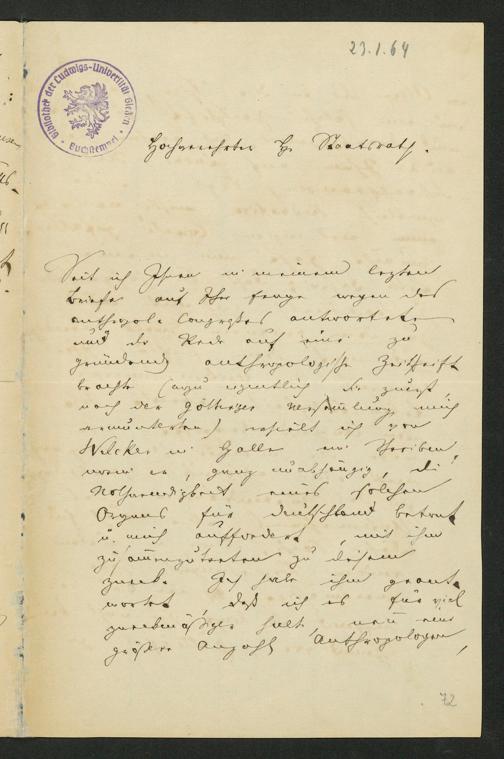 23.1.64
Bibliothek der Ludwigs-Universität Gießen
Buchstempel
Hochverehrter Hr Staatsrath.
Seit ich Ihnen in meinem lezten
Briefe auf Ihre Frage wegen des
anthropolo Congresses antwortete
und die Rede auf eine zu
gründende anthropologische Zeitschrift
brachte (wozu eigentlich Sie zuerst,
nach der Göttinger Versammlung mich
ermunterten) erhielt ich von
Welcker in Halle ein Schreiben,
worin er, ganz unabhängig, die
Nothwendigkeit eines solchen
Organs für Deutschland betont
u. mich auffordert, mit ihm
zusammenzutreten zu diesem
Zweck. Ich habe ihm geant-
wortet, daß ich es für viel
zweckmäßiger halte, wenn eine
größere Anzahl Anthropologen,
72